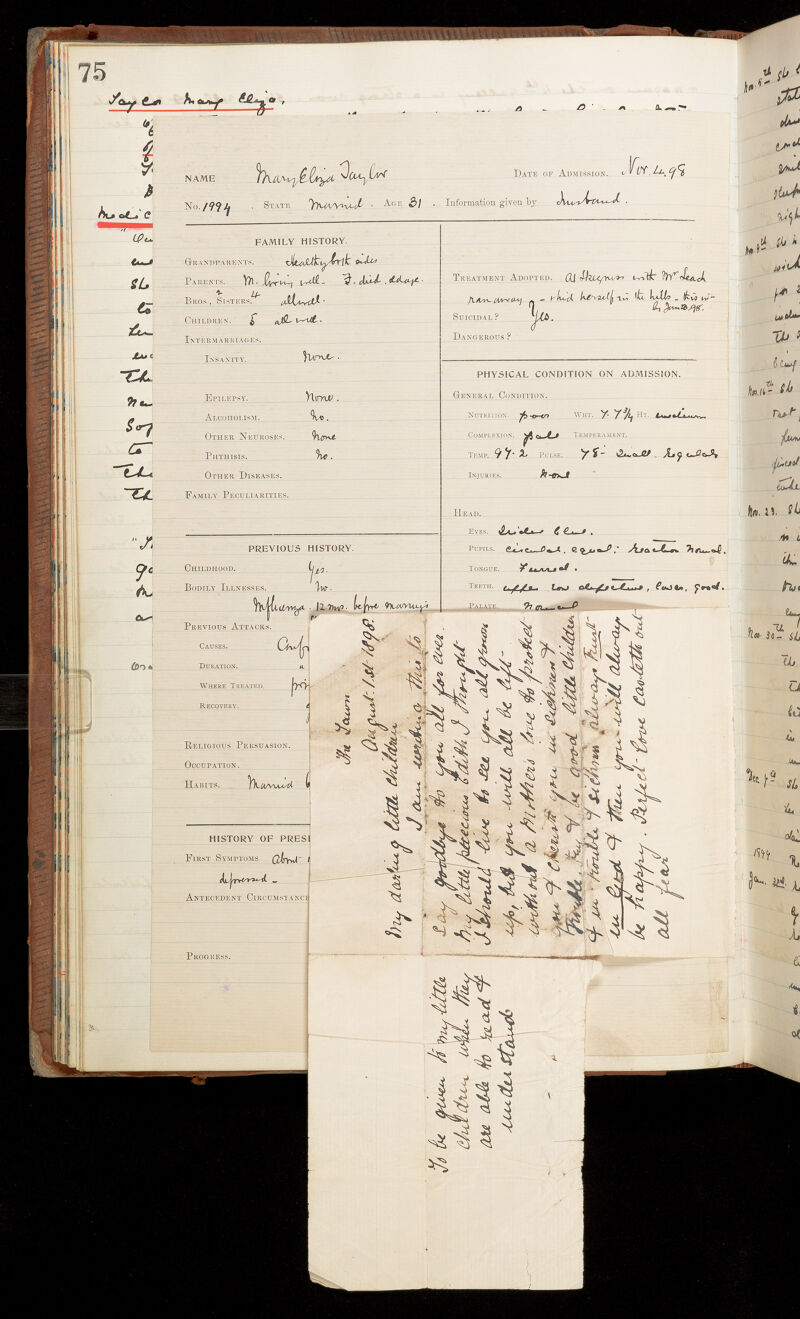 75
Taylor Mary Eliza.
NAME Mary Eliza Taylor
DATE OF ADMISSION. Nov. 4. 98
No. 1994 . STATE Married . AGE 31 . Information given by husband.
FAMILY HISTORY.
GRANDPARENTS. Healthy both sides
PARENTS. M. living well. F. died old age.
BROS, 2 SISTERS. 4 all well.
CHILDREN. 5 all well.
INTERMARRIAGES.
INSANITY. None.
EPILEPSY. None.
ALCOHOLISM. No.
OTHER NEUROSES. None
PHTHISIS. No.
OTHER DISEASES.
FAMILY PECULIARITIES.
PREVIOUS HISTORY.
CHILDHOOD. Yes.
BODILY ILLNESSES. No.
Influenza. 12 mos. before marriage
PREVIOUS ATTACKS.
CAUSES.
DURATION.
WHERE TREATED.
RECOVERY.
RELIGIOUS PERSUASION.
OCCUPATION.
HABITS. Married
HISTORY OF PRES
FIRST SYMPTOMS About
depressed
ANTECEDENT CIRCUMSTANC
PROGRESS.
TREATMENT ADOPTED. At Skegness with Mr Leach
ran away & hid herself in the hills - this in
SUICIDAL? Yes.
DANGEROUS?
PHYSICAL CONDITION ON ADMISSION.
GENERAL CONDITION.
NUTRITION poor WHT. 7. 7¾ HT. medium
COMPLEXION. pale TEMPERAMENT.
TEMP. 97.2 PULSE. 78 - Small. Regular
INJURIES. None
HEAD.
EYES. Irides blue.
PUPILS. circular, equal: Reaction Normal.
TONGUE. Furred.
TEETH. upper row defective, lower, good.
PALATE. Normal
The Lawn
August. 1st 1898.
My darling little children
I am writing this to
say goodbye to you all for ever.
My little precious Edith I thought
I should live to see you all grown
up, but you will all be left
without a Mothers love to protect
you & cherish you in sickness &
trouble. Try & be good little children
& in trouble & sickness always trust
in God & then you will always
be happy. Perfect Love casteth out
all fear
To be given to my little
children when they
are able to read &
understand
Nov. 5th She
Nov. 16th She
Nov. 23. She
Nov. 30th She
Dec. 7th She
1899
Jan.